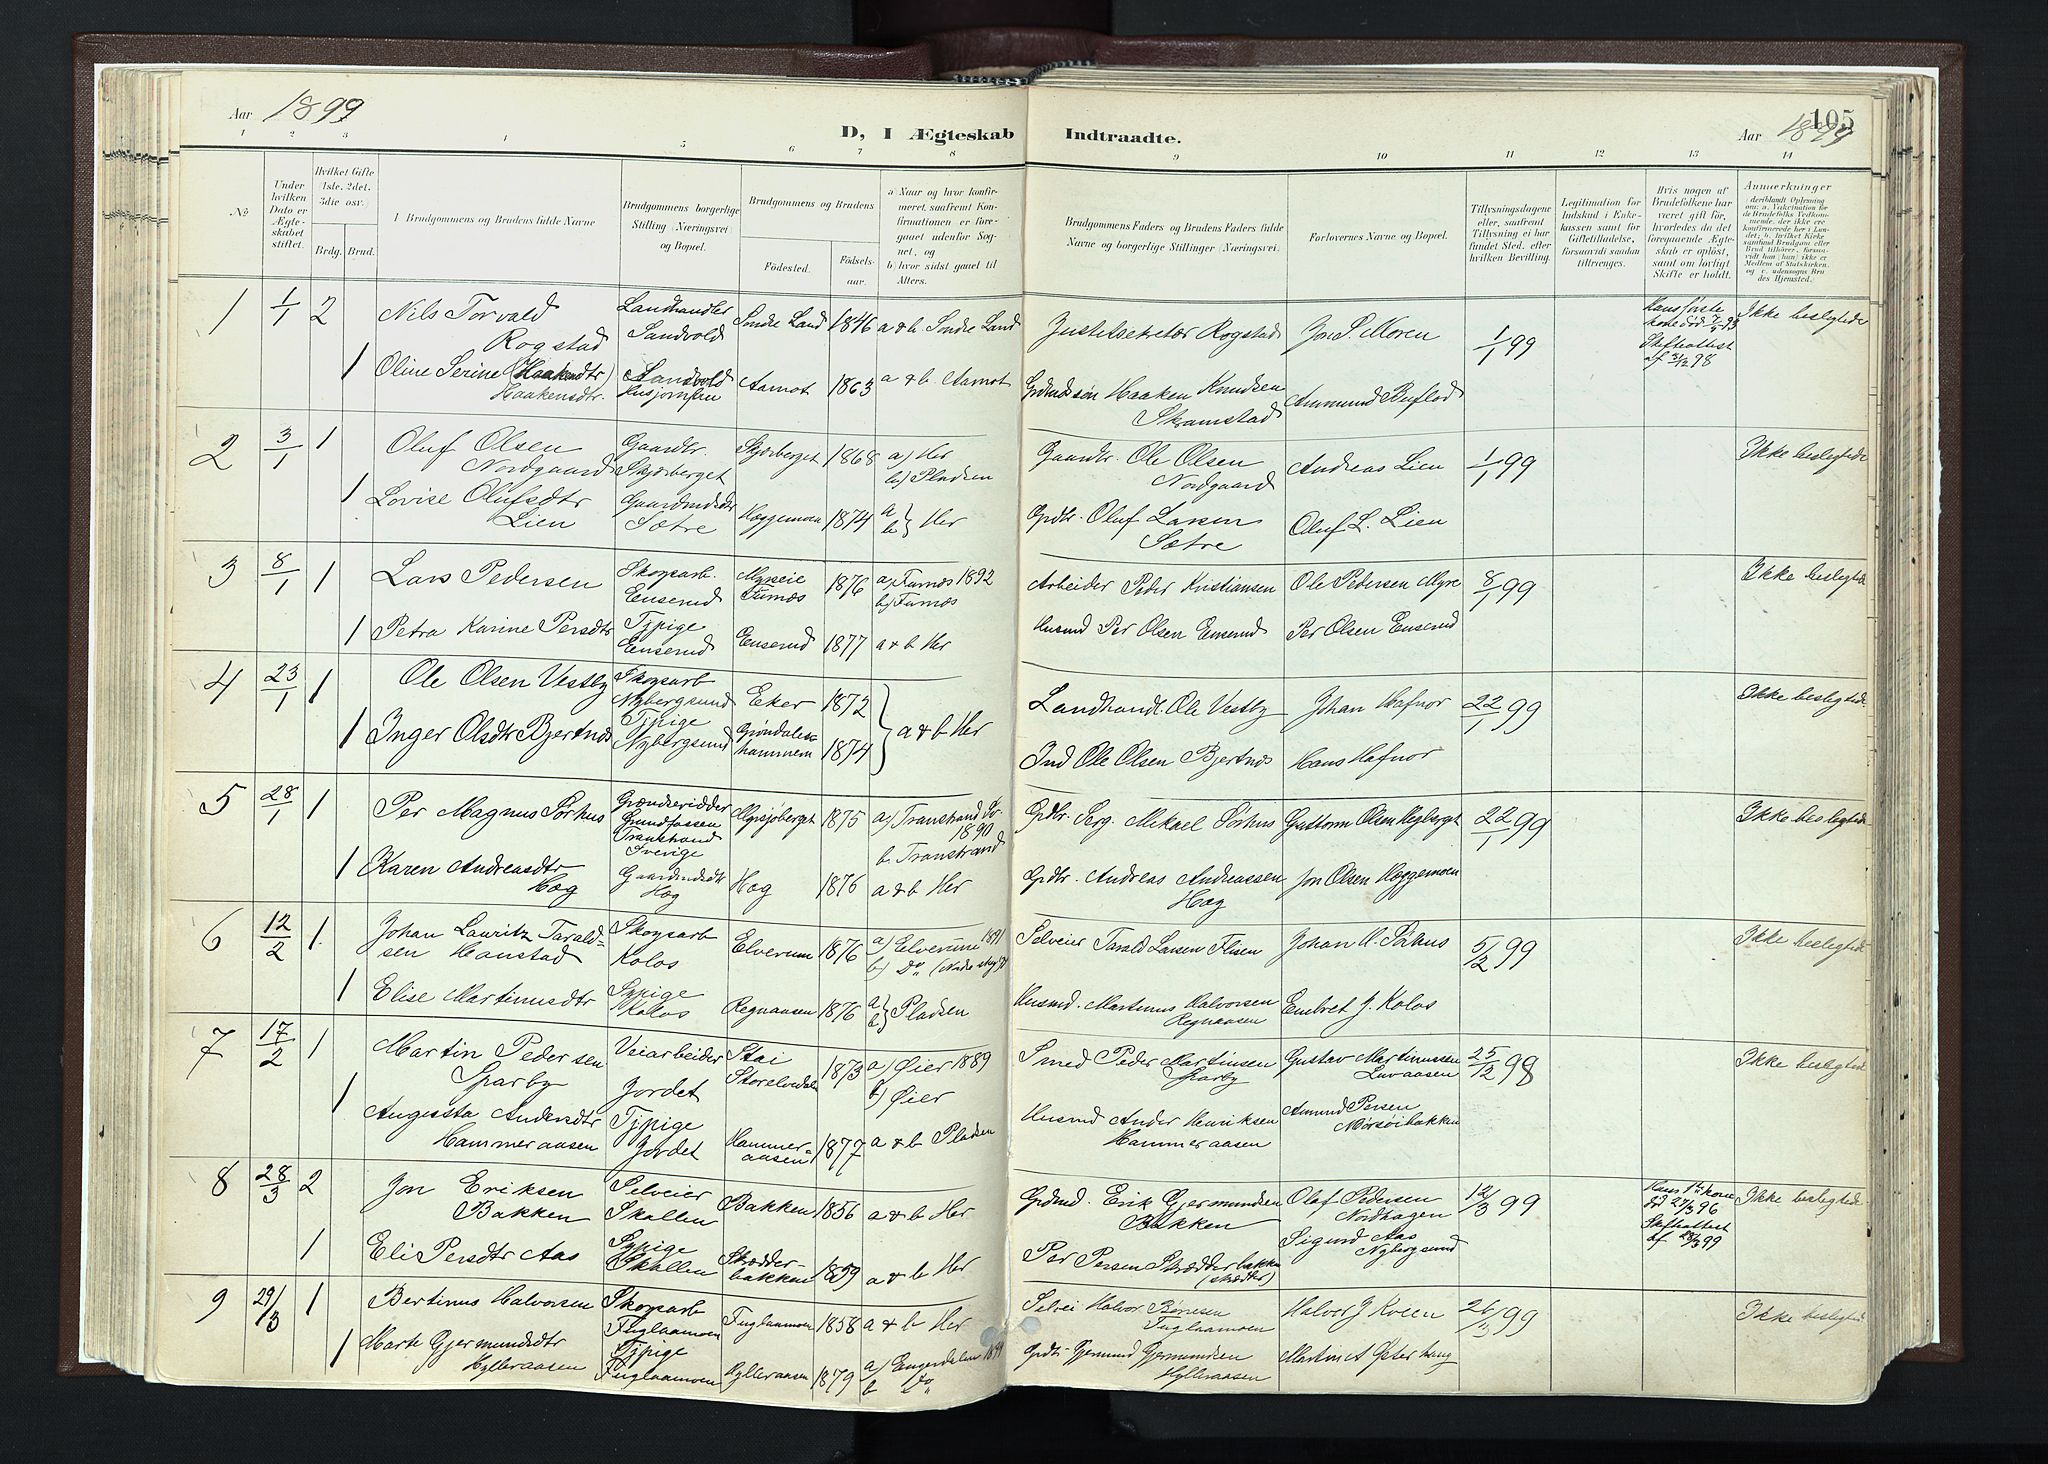 Aar 1899
D, I Ægteskab Indtraadte.
Aar 1899
105
1 2 3 4 5 6 7 8 9 10 11 12 13 14
No
Under hvilken Dato er Ægteskabet stiftet.
Hvilket Gifte 1ste, 2det, 3die osv.
Brdg. Brud.
Brudgommens og Brudens fulde Navne
Brudgommens borgerlige Stilling (Næringsvei) og Bopæl.
Brudgommens og Brudens
Fødested.
Fødselsaar.
a Naar og hvor konfirmeret, saafremt Konfirmationen er foregaaet udenfor Sognet, og
b) hvor sidst gaaet til Alters.
Brudgommens Faders og Brudens Faders fulde Navne og borgerlige Stillinger (Næringsvei).
Forlovernes Navne og Bopæl.
Tillysningsdagene eller, saafremt Tillysning ei har fundet Sted, efter hvilken Bevilling.
Legitimation for Indskud i Enkekassen samt for Giftetilladelse, forsaavidt saadan tiltrænges.
Hvis nogen af Brudefolkene har været gift før, hvorledes da det foregaaende Ægteskab er opløst, samt om lovligt Skifte er holdt.
Anmærkninger
1 1/1 2 Nils Torvald Rogstad Landhandler Sandvold Søndre Land 1846 a & b Søndre Land Justitsekretær Rogstad Jon S. Moren 1/1 99 Hans første kone død Skifteattest af 31/12 98 Ikke beslegtede
1 Oline Serine (Haakendtr) Haakensdtr. Sandvold Husjomfru Aamot 1863 a & b Aamot Haaken Knudsen Skramstad Ammund Buflod
2 3/1 1 Oluf Olsen Nordgaard Gaardbr. Skjærberget Skjærberget 1868 a) Her b) Pladsen Gaardbr. Ole Olsen Nordgaard Andreas Lien 1/1 99 Ikke beslegtede
1 Lovise Olufsdtr Lien Gaardmdsdtr Sætre Heggemoen 1874 a b} Her Gdbr. Oluf Larsen Sætre Oluf L. Lien
3 8/1 1 Lars Pedersen Skogsarb. Enserud Furnæs 1876 a) Furnæs 1892 b) Furnæs Arbeider Peder Kristiansen Ole Pedersen Myre 8/1 99 Ikke beslegtede
1 Petra Karine Persdtr Tjpige Enserud Enserud 1877 a & b Her Husmd Per Olsen Enserud Per Olsen Enserud
4 23/1 1 Ole Olsen Vestby Skogsarb Nybergsund Eker 1872 Landhandl. Ole Vestby Johan Hafnor 22/1 99 Ikke beslegtede
1 Inger Olsdtr Bjertnæs Tjpige Nybergsund Grøndalshammeren 1874 } a & b Her Ind Ole Olsen Bjertnæs Hans Hafnor
5 28/1 1 Per Magnus Sørhus Grændseridder Grundfossen Transtrand Sverige Mysjøberget 1875 a) Transtrand Sv. 1890 b. Transtrand Gdbr. Mikael Sørhus Guttorm Olsen 22/1 99 Ikke beslegtede
1 Karen Andreasdtr Hæg Gaardmdsdtr Hæg Hæg 1876 a & b Her Gdbr. Andreas Andreassen Hæg Jon Olsen Heggemoen
6 12/2 1. Johan Lauritz Taraldsen Hanstad Skogsarb Kolos Elverum 1876 a) Elverum 1891 b) Do Selveier Tarald Larsen Flisen Johan A. Sørhus 5/2 99 Ikke beslegtede
1 Elise Martinusdtr Sypige Kolos Regnaasen 1876 a b} Pladsen Husmd. Martinus Halvorsen Regnaasen Embret J. Kolos
7 17/2 1 Martin Pedersen Sparby Veiarbeider Jordet Stai Storelvedalen 1873 a) Øier 1889 b) Øier Smed Peder Martinsen Sparby Gustav Martinussen Luvaasen 25/12 98 Ikke beslegtede
1 Augusta Andersdtr Hammeraasen Tjpige Jordet Hammeraasen 1877 a & b Pladsen Husmd Ander Henriksen Hammeraasen Amund Persen Mørsøibakken
8 28/3 2 Jon Eriksen Bakken Selveier Skallen Bakken 1856 a & b Her Grdmd. Erik Gjermundsen Bakken Olaf Pedersen Nordhagen 12/3 99 Hans 1ste kone død 27/3 96 Skifteattest af 28/3 99 Ikke beslegtede
1 Eli Persdtr Aas Sypige Skallen Skrædderbakken 1859 a & b Her Per Persen Skrædderbakken (skrædder) Sigurd Aas Nybergsund
9 29/3 1 Bertinus Halvorsen Skogsarb Fuglaamoen Fuglaamoen 1858 a & b Her Selvei Halvor Børresen Fuglaamoen Halvor J Kveen 26/3 99 Ikke beslegtede
1 Marte Gjermundsdtr Hylleraasen Tjpige Fuglaamoen Hylleraasen 1879 a) Engerdalen b Do Gdbr. Gjermund Gjermundsen Hylleraasen Martin A Østerhaug